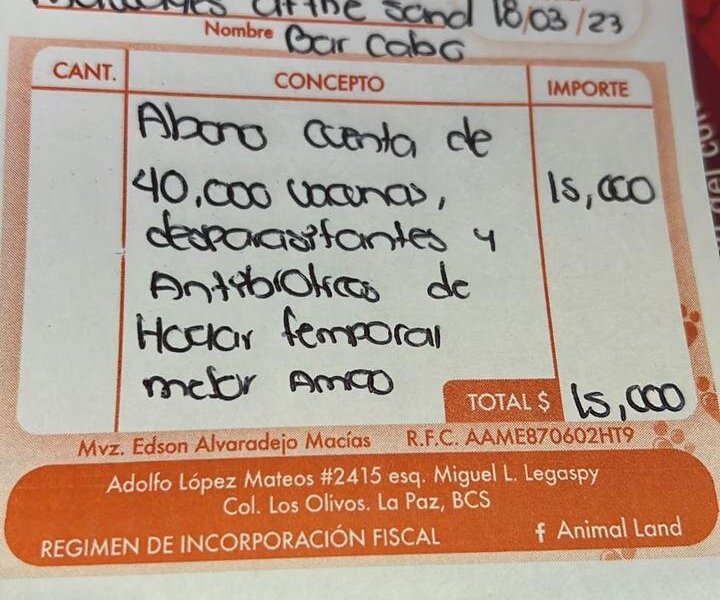 of the Sand 18/03/23
Nombre Bar Cabo
CANT. CONCEPTO IMPORTE
Abono cuenta de
40,000 vacunas, 15,000
desparasitantes y
Antibioticos de
Hogar temporal
mejor Amigo
TOTAL $ 15,000
Mvz. Edson Alvaradejo Macías R.F.C. AAME870602HT9
Adolfo López Mateos #2415 esq. Miguel L. Legaspy
Col. Los Olivos. La Paz, BCS
REGIMEN DE INCORPORACIÓN FISCAL f Animal Land